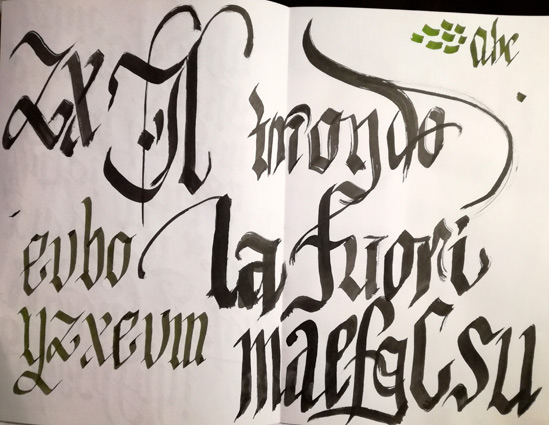 zx Il mondo
abc
evbo la fuori
yzxevm maefgCsu